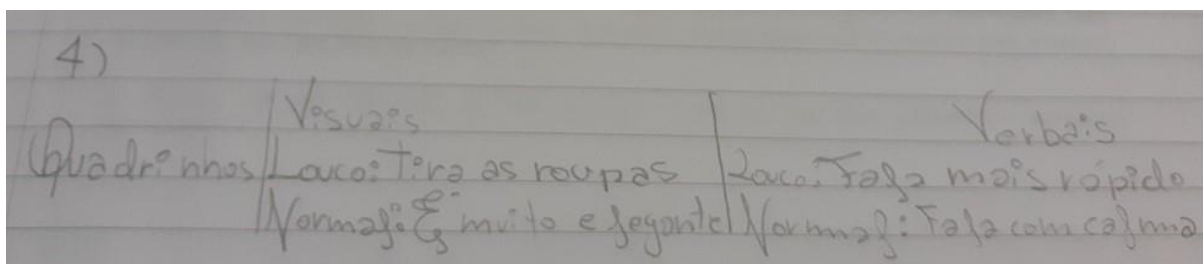 4)
Visuais Verbais
Quadrinhos Louco: Tira as roupas Louco: Fala mais rápido
Normal: É muito elegante Normal: Fala com calma